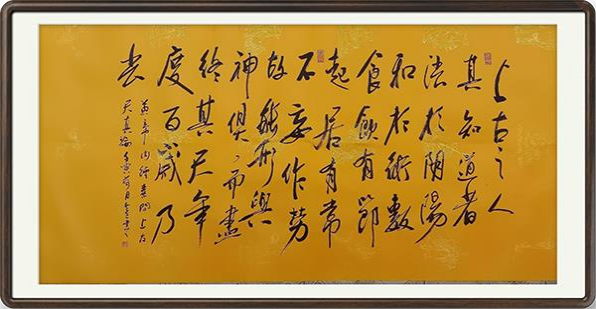 上古之人
其知道者
法於陰陽
和於術數
食飲有節
起居有常
不妄作勞
故能形與
神俱而盡
終其天年
度百歲乃
去
黃帝内經素問上古
天真論壬寅